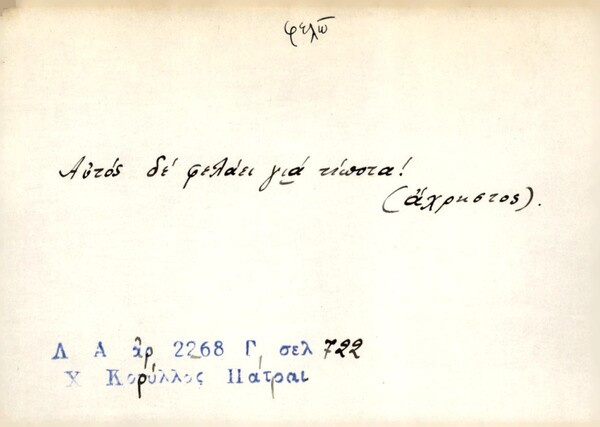 φελῶ
Αὐτός δέ φελάει γιά τίποτα!
(ἄχρηστος).
Λ Α ἀρ 2268 Γ, σελ 722
Χ Κορύλλος Πάτραι